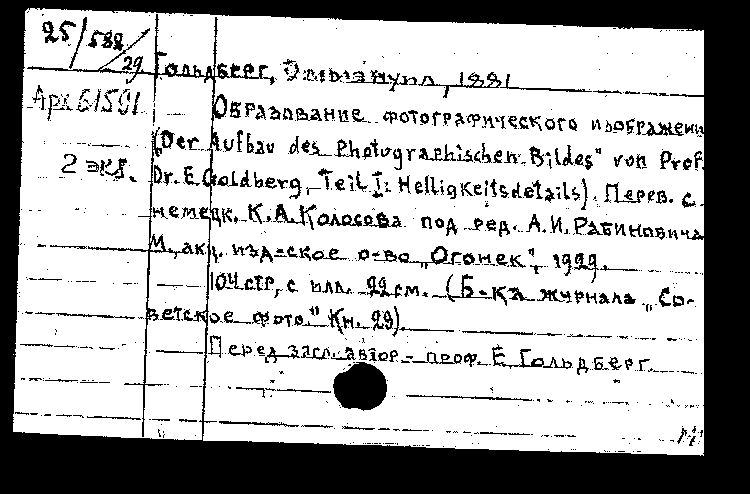 25/582
29
Гольдберг, Эммануил, 1881
Арх 61591
Образование фотографического изображени
("Der Aufbau des Photographischen Bildes" von Prof.
2 экз.
Dr. E. Goldberg, Teil I: Helligkeitsdetails). Перев. с
немецк. К.А. Колосова под ред. А.И. Рабиновича
М., акц. изд-ское о-во "Огонек", 1929.
104 стр, с илл. 22 см. (Б-ка журнала "Со-
ветское фото." Кн. 29).
Перед загл. автор - проф. Е Гольдберг.